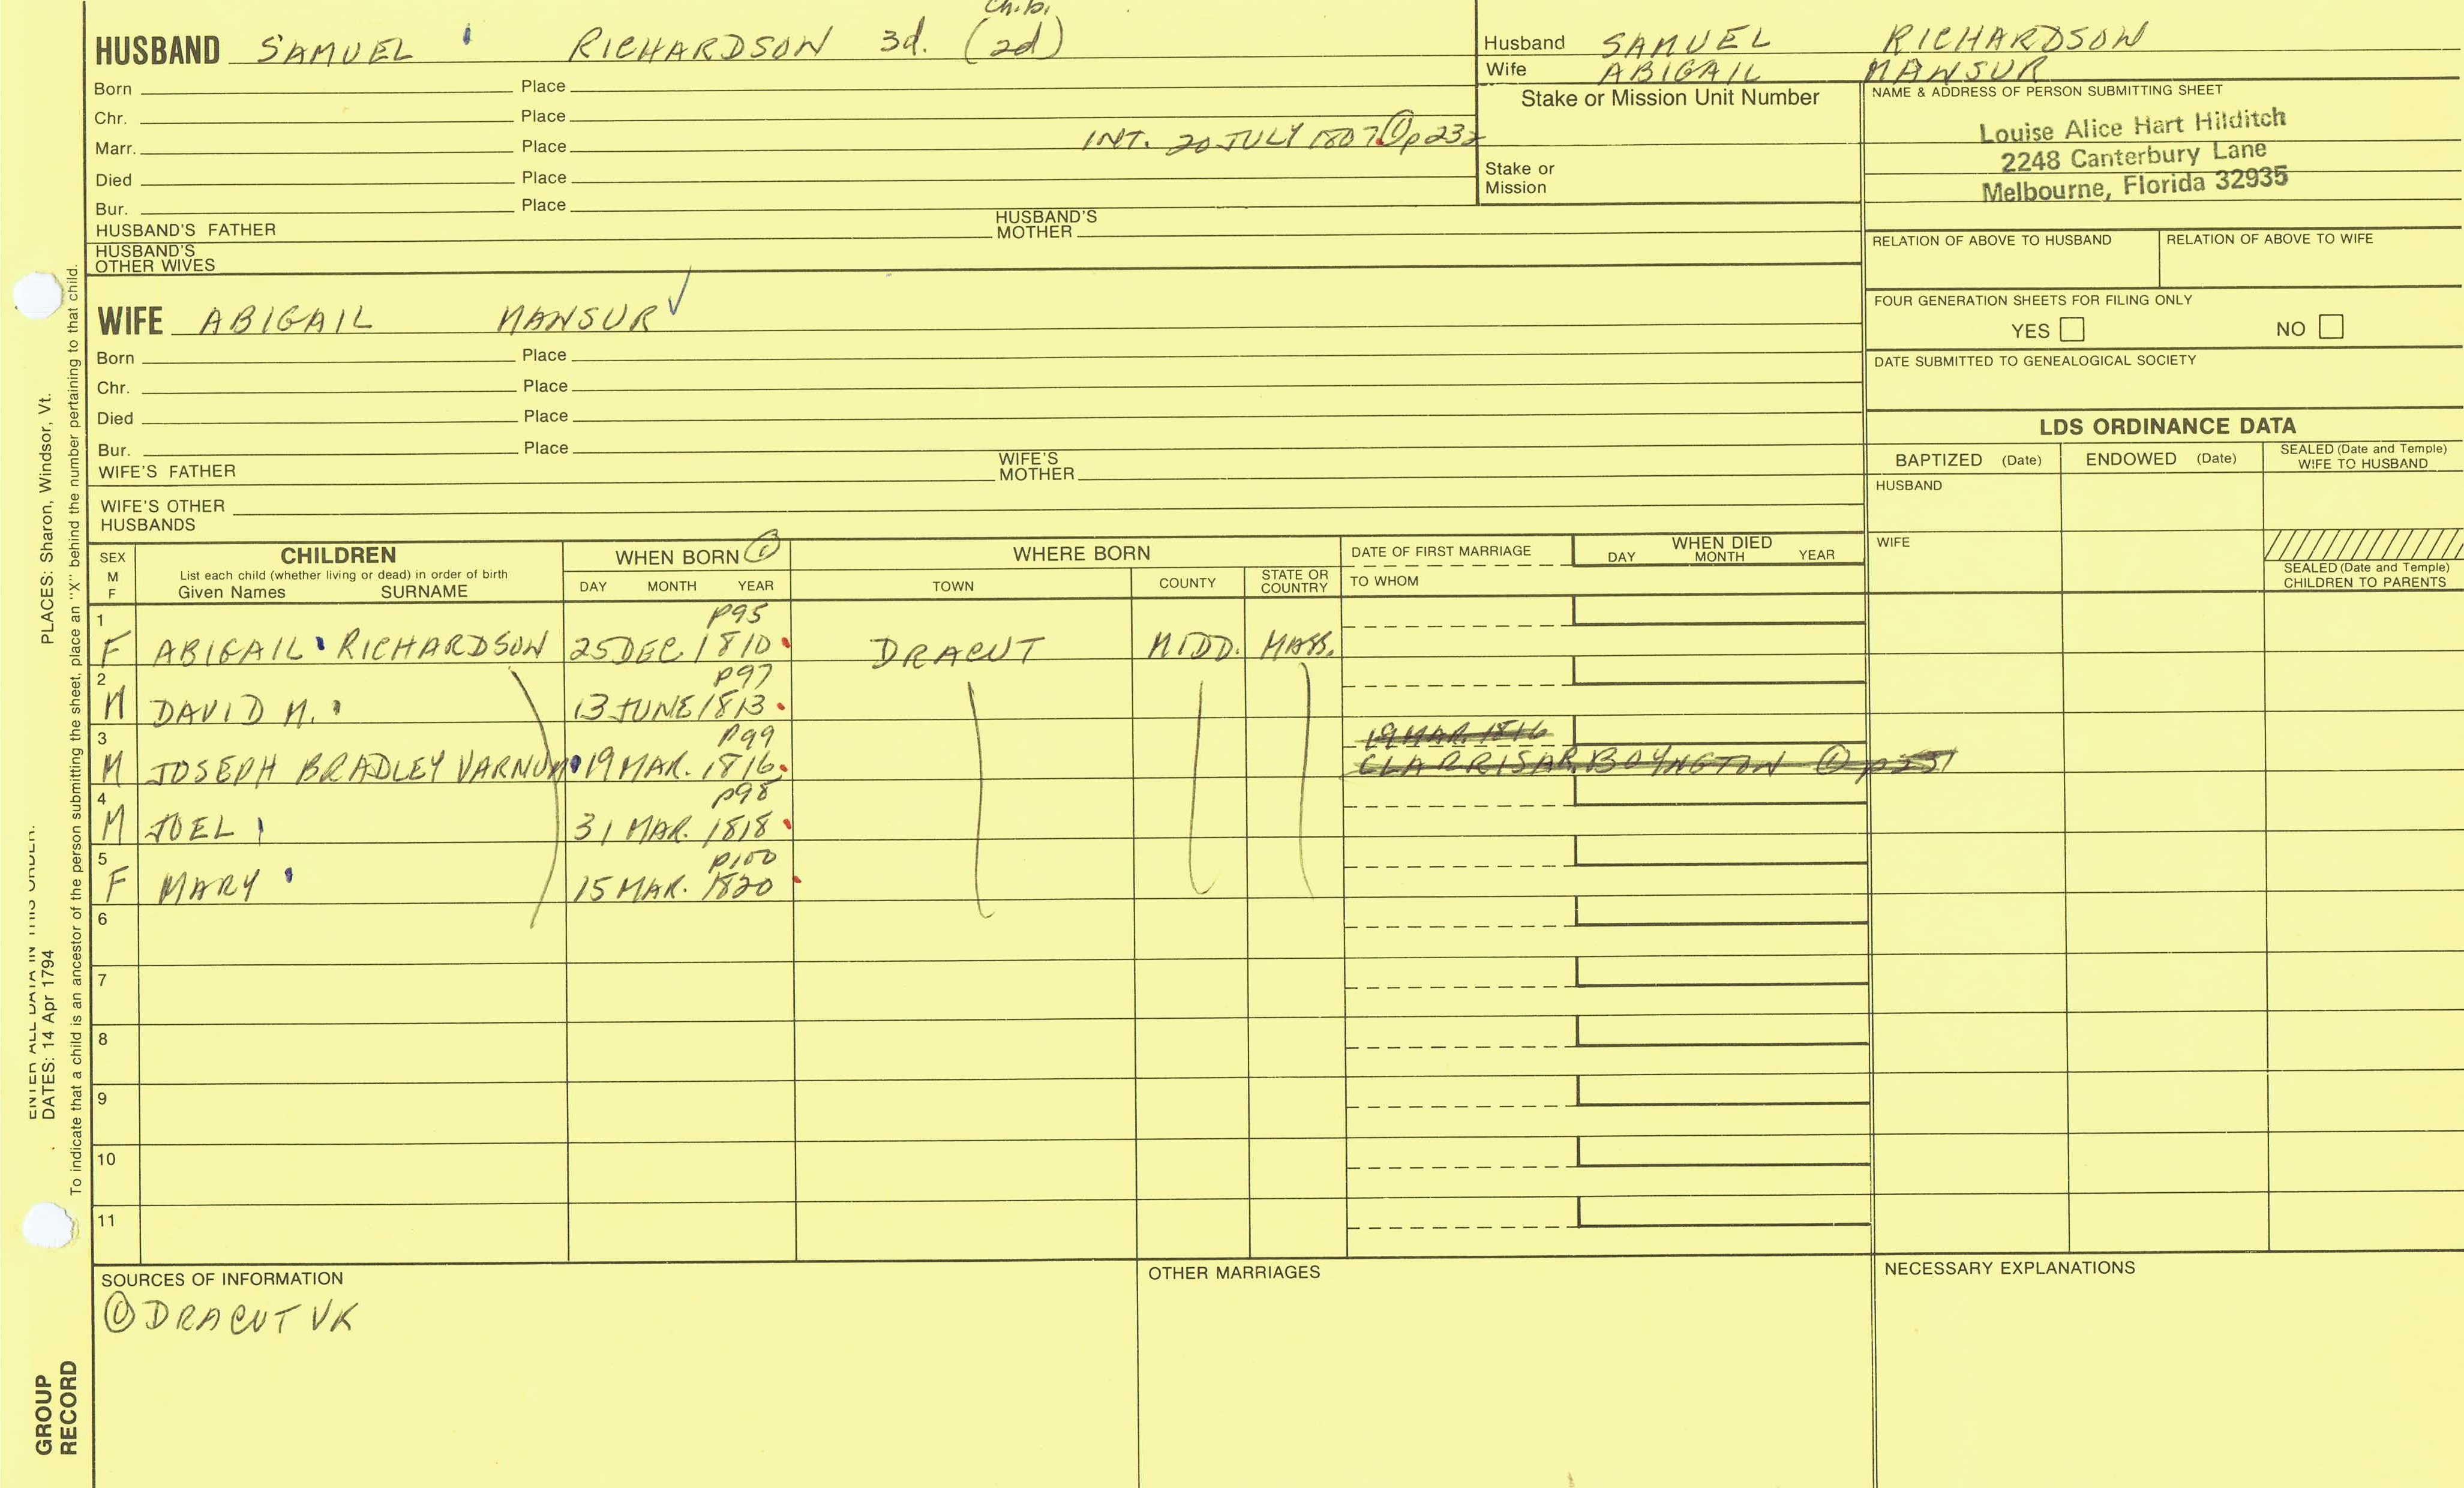 Ch. b.
HUSBAND SAMUEL RICHARDSON 3d. (2d)
Born Place
Chr. Place
Marr. Place INT. 20 JULY 1807 ① p232
Died Place
Bur. Place
HUSBAND'S FATHER HUSBAND'S MOTHER
HUSBAND'S OTHER WIVES
Husband SAMUEL RICHARDSON
Wife ABIGAIL MANSUR
Stake or Mission Unit Number
Stake or
Mission
NAME & ADDRESS OF PERSON SUBMITTING SHEET
Louise Alice Hart Hilditch
2248 Canterbury Lane
Melbourne, Florida 32935
RELATION OF ABOVE TO HUSBAND RELATION OF ABOVE TO WIFE
FOUR GENERATION SHEETS FOR FILING ONLY
YES NO
DATE SUBMITTED TO GENEALOGICAL SOCIETY
WIFE ABIGAIL MANSUR ✓
Born Place
Chr. Place
Died Place
Bur. Place
WIFE'S FATHER WIFE'S MOTHER
WIFE'S OTHER
HUSBANDS
LDS ORDINANCE DATA
BAPTIZED (Date) ENDOWED (Date) SEALED (Date and Temple) WIFE TO HUSBAND
HUSBAND
WIFE
SEALED (Date and Temple)
CHILDREN TO PARENTS
SEX
M
F
CHILDREN
List each child (whether living or dead) in order of birth
Given Names SURNAME
WHEN BORN ①
DAY MONTH YEAR
WHERE BORN
TOWN COUNTY STATE OR COUNTRY
DATE OF FIRST MARRIAGE
TO WHOM
WHEN DIED
DAY MONTH YEAR
1 P95
F ABIGAIL RICHARDSON 25 DEC. 1810 DRACUT MIDD. MASS.
2 P97
M DAVID M. 13 JUNE 1813
3 P99 19 MAR. 1816
M JOSEPH BRADLEY VARNUM 19 MAR. 1816 CLARRISA R. BOYNGTON ① p231
4 p98
M JOEL 31 MAR. 1818
5 P100
F MARY 15 MAR. 1820
6
7
8
9
10
11
SOURCES OF INFORMATION
① DRACUT VR
OTHER MARRIAGES
NECESSARY EXPLANATIONS
ENTER ALL DATA IN THIS ORDER:
DATES: 14 Apr 1794 PLACES: Sharon, Windsor, Vt.
To indicate that a child is an ancestor of the person submitting the sheet, place an "X" behind the number pertaining to that child.
GROUP
RECORD